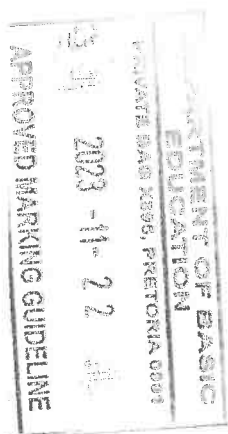 PARTMENT OF BASIC
EDUCATION
PRIVATE BAG X895, PRETORIA 0001
2023 -11- 22
APPROVED MARKING GUIDELINE